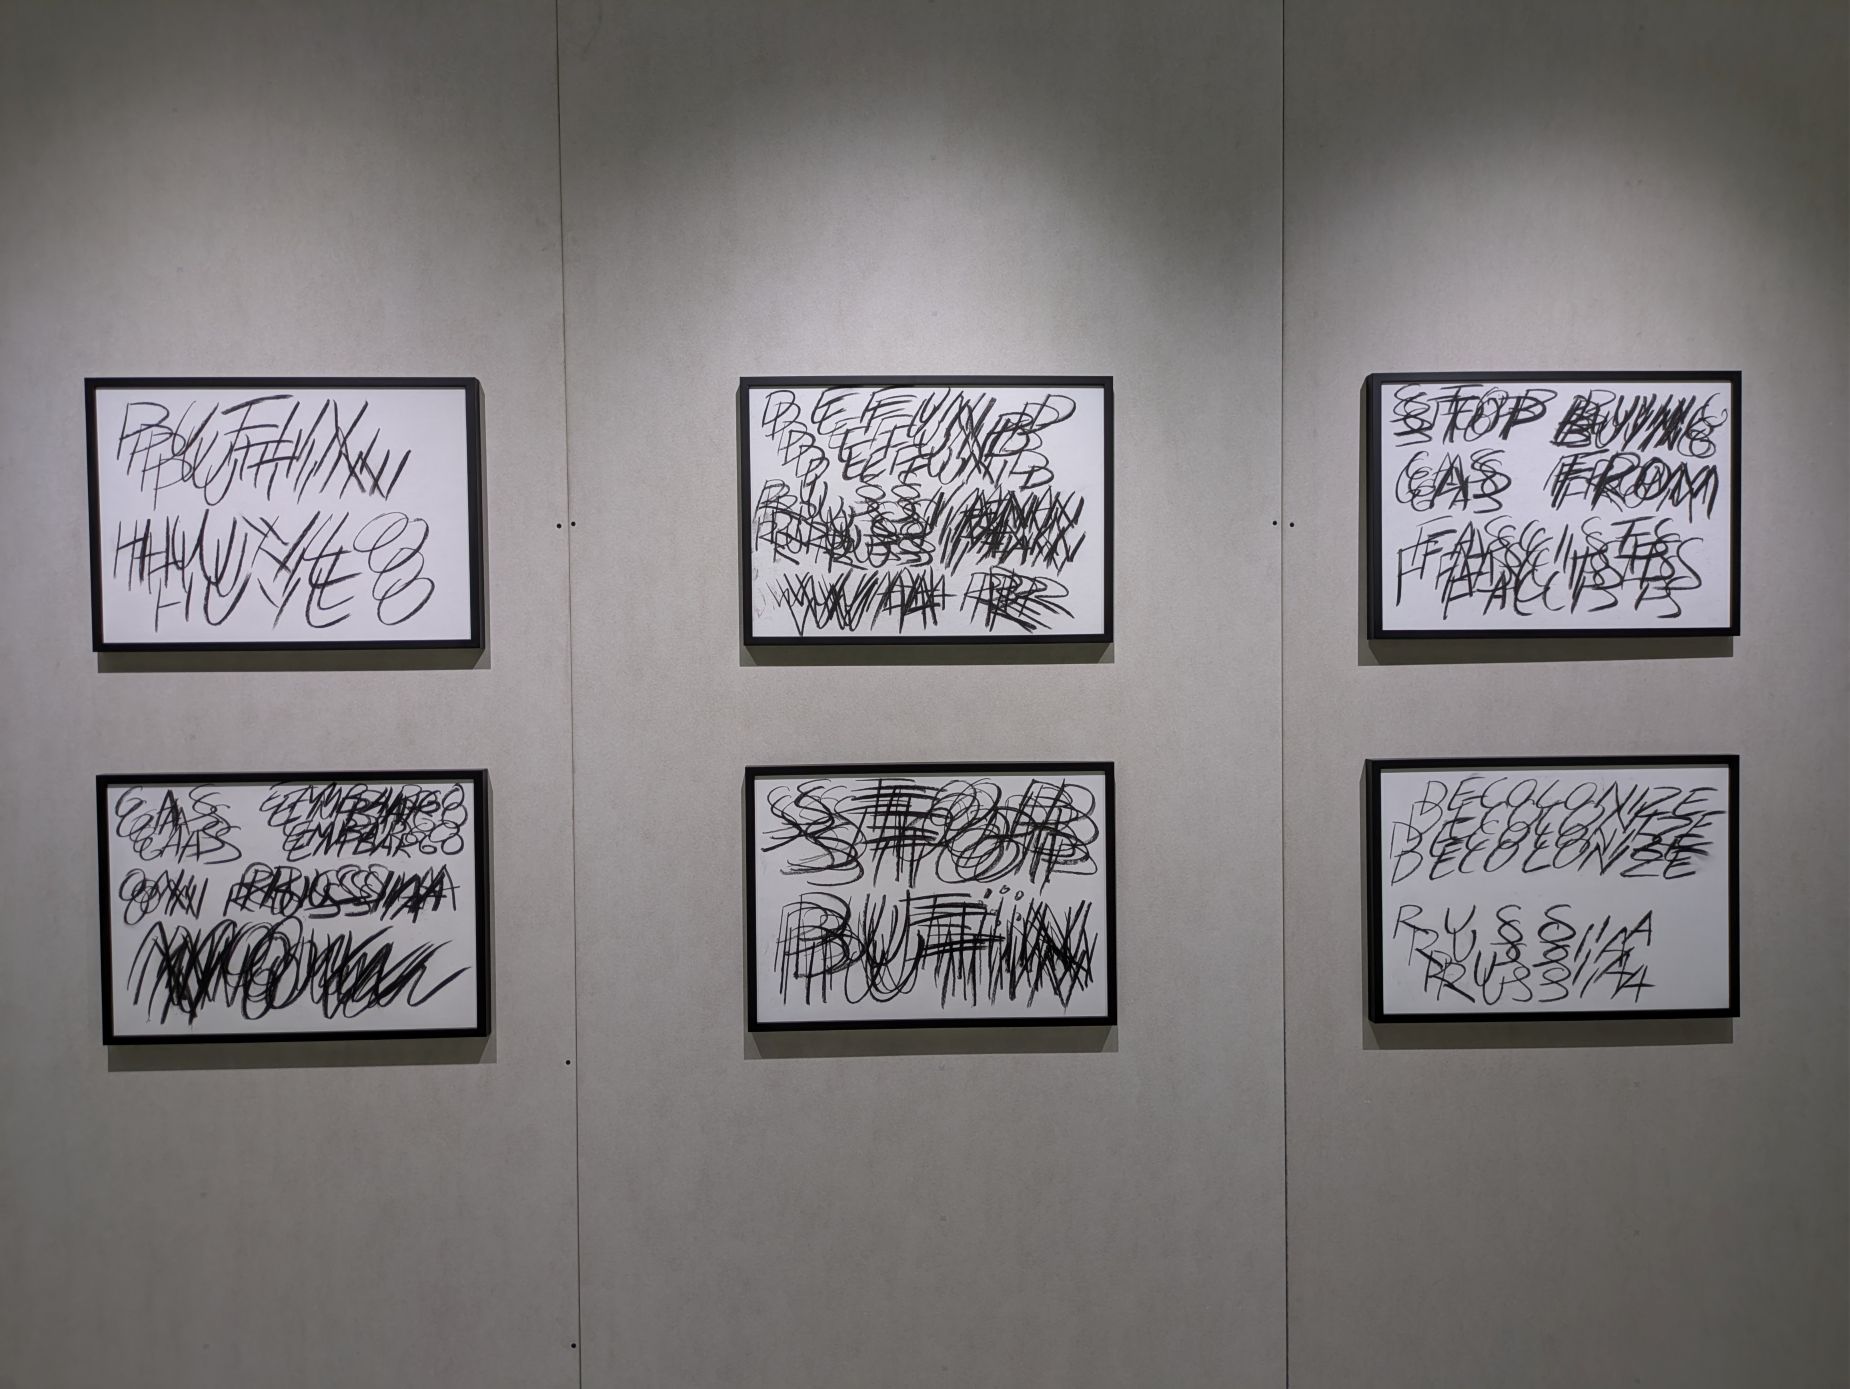 PUTIN
HUYLO
DEFUND
RUSSIAN
WAR
STOP BUYING
GAS FROM
FASCISTS
GAS EMBARGO
ON RUSSIA
NOW
STOP
PUTIN
DECOLONIZE
RUSSIA